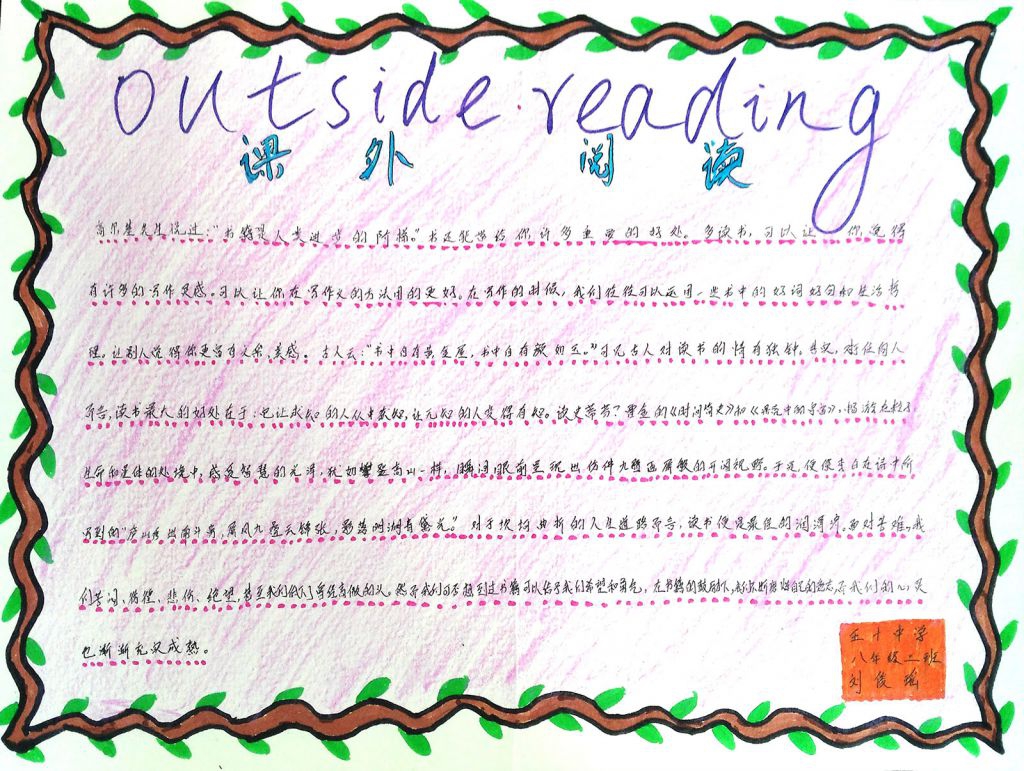 outside reading
课外阅读
高尔基先生说过:"书籍是人类进步的阶梯。"书还能带给你许多重要的好处。多读书,可以让你觉得
有许多的写作灵感。可以让你在写作文的方法用的更好。在写作的时候,我们往往可以运用一些书中的好词好句和生活哲
理。让别人觉得你更富有文采,美感。古人云:"书中自有黄金屋,书中自有颜如玉。"可见古人对读书的情有独钟。其实,对任何人
而言,读书最大的好处在于:它让求知的人从中获知,让无知的人变得有知。读史蒂芬?霍金的《时间简史》和《果壳中的宇宙》,畅游在粒子、
生命和星体的处境中,感受智慧的光泽,犹如攀登高山一样,瞬间眼前呈现出仿佛九叠画屏般的开阔视野。于是,便像李白在诗中所
写到的"庐山秀出南斗旁,屏风九叠云锦张,影落明湖青黛光。"对于坎坷曲折的人生道路而言,读书便是最佳的润滑济。面对苦难,我
们苦闷、彷徨、悲伤、绝望,甚至我们低下了曾经高傲的头。然而我们可否想到过书籍可以给予我们希望和勇气,在书籍的鼓励下,我们的心灵
也渐渐充实成熟。
五十中学
八年级二班
刘俊瑶